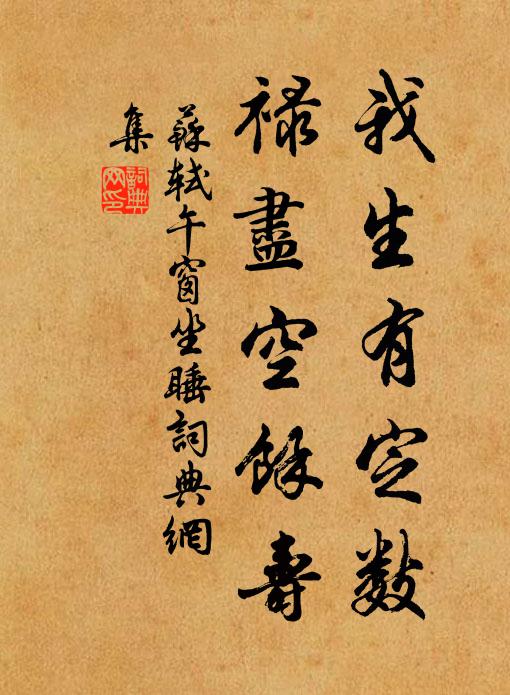 我生有定數
祿盡空餘壽
蘇軾午窗坐睡詞典網
集
詞典
网印